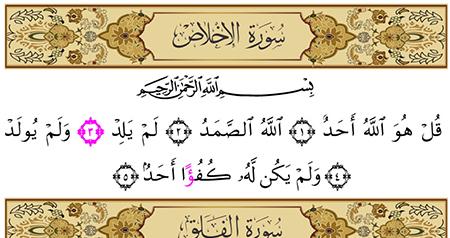 سُورَةُ الإِخْلَاصِ
بِسْمِ اللَّهِ الرَّحْمَٰنِ الرَّحِيمِ
قُلْ هُوَ اللَّهُ أَحَدٌ ﴿١﴾ اللَّهُ الصَّمَدُ ﴿٢﴾ لَمْ يَلِدْ ﴿٣﴾ وَلَمْ يُولَدْ
﴿٤﴾ وَلَمْ يَكُن لَّهُۥ كُفُؤًا أَحَدٌۢ ﴿٥﴾
سُورَةُ الْفَلَقِ